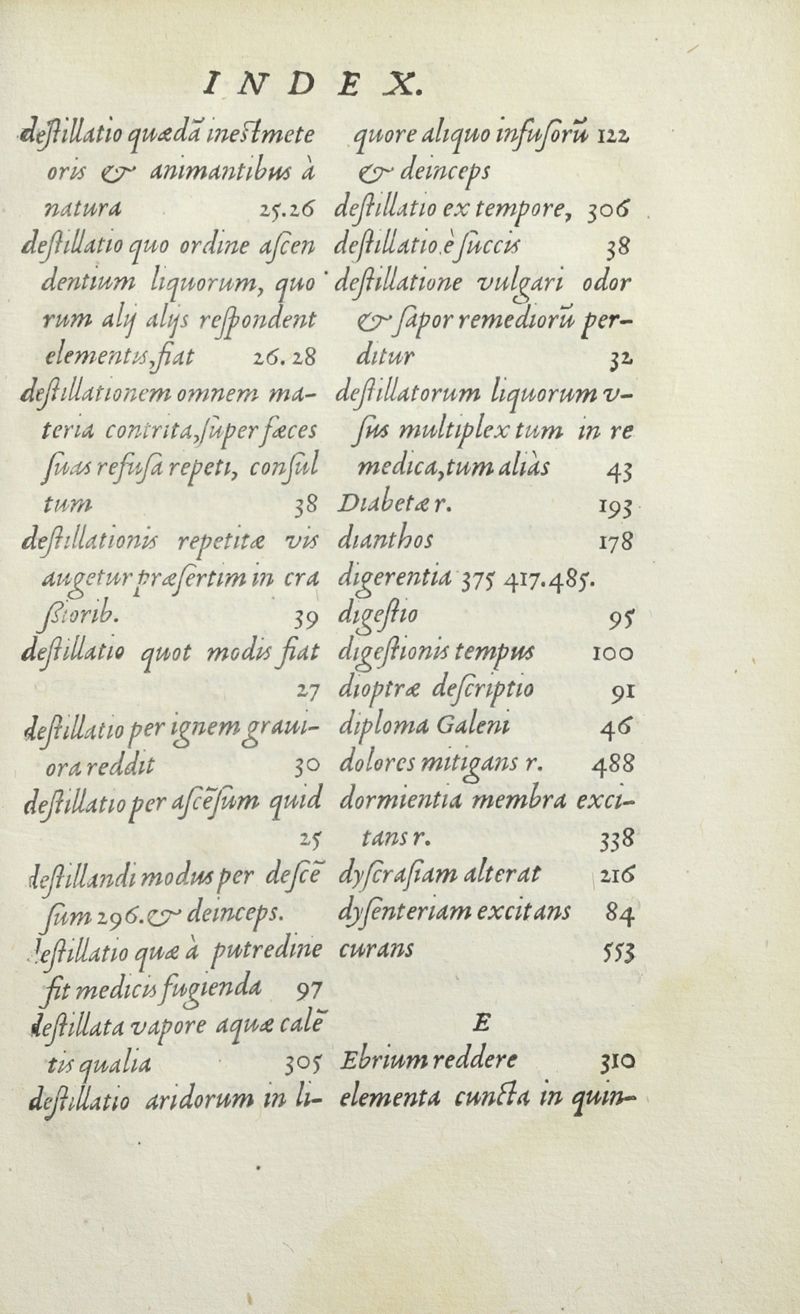 INDEX.
destillatio quædã inest mete
oris & animantibus à
natura 25.26
destillatio quo ordine ascen
dentium liquorum, quo
rum alij alijs respondent
elementis, fiat 26.28
destillationem omnem ma-
teria contrita, super fæces
suas refusa repeti, consul
tum 38
destillationis repetitæ vis
augetur præsertim in cra
ssiorib. 39
destillatio quot modis fiat
27
destillatio per ignem graui-
ora reddit 30
destillatio per ascẽsum quid
25
destillandi modus per descẽ
sum 296. & deinceps.
destillatio quæ à putredine
fit medicis fugienda 97
destillata vapore aquæ calẽ
tis qualia 305
destillatio aridorum in li-
quore aliquo infusorũ 122
& deinceps
destillatio ex tempore, 306
destillatio è succis 38
destillatione vulgari odor
& sapor remediorũ per-
ditur 32
destillatorum liquorum v-
sus multiplex tum in re
medica, tum aliàs 43
Diabetæ r. 193
dianthos 178
digerentia 375 417.485.
digestio 95
digestionis tempus 100
dioptræ descriptio 91
diploma Galeni 46
dolores mitigans r. 488
dormientia membra exci-
tans r. 338
dyscrasiam alterat 216
dysenteriam excitans 84
curans 553
E
Ebrium reddere 310
elementa cuncta in quin-